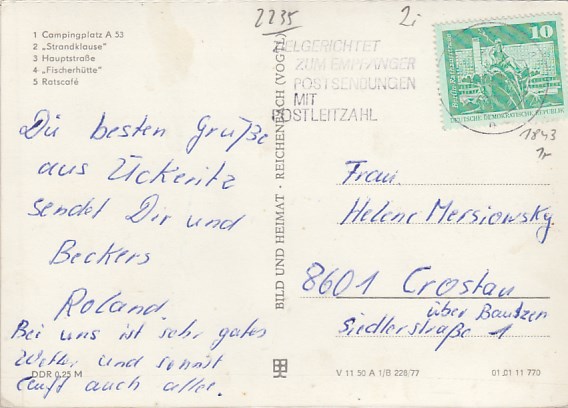 1 Campingplatz A 53
2 „Strandklause"
3 Hauptstraße
4 „Fischerhütte"
5 Ratscafé
2235
2i
ZIELGERICHTET
ZUM EMPFÄNGER
POSTSENDUNGEN
MIT
POSTLEITZAHL
10
DEUTSCHE DEMOKRATISCHE REPUBLIK
1843
Die besten Grüße
aus Ückeritz
sendet Dir und
Beckers
Roland.
Bei uns ist sehr gutes
Wetter und sonnst
läuft auch alles.
BILD UND HEIMAT · REICHENBACH (VOGTL)
Frau
Helene Mersiowsky
8601 Crostau
über Bautzen
Siedlerstraße 1
DDR 0,25 M
V 11 50 A 1/B 228/77
01 01 11 770